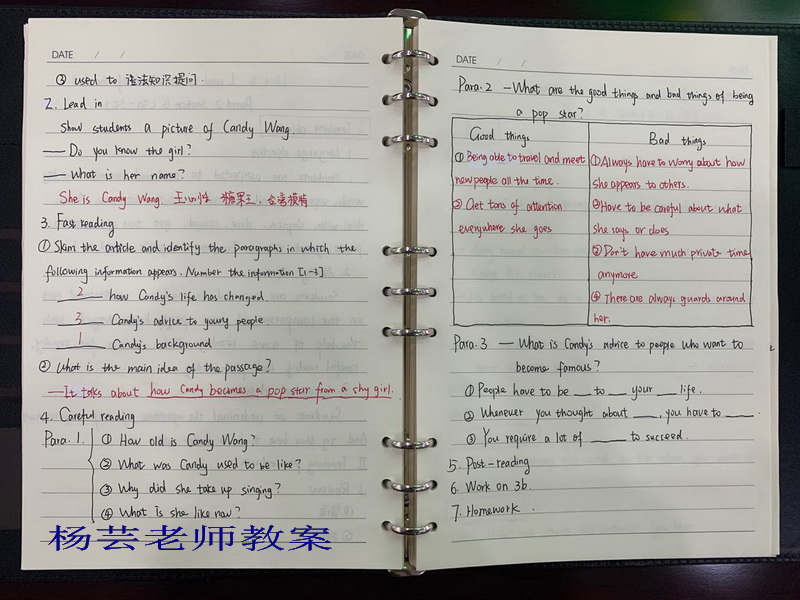 DATE / /
③ used to 语法知识提问.
2. Lead in
Show students a picture of Candy Wang.
— Do you know the girl?
— What is her name?
She is Candy Wang.
3. Fast reading
① Skim the article and identify the paragraphs in which the
following information appears. Number the information [1-3]
2 how Candy's life has changed.
3 Candy's advice to young people
1 Candy's background
② What is the main idea of the passage?
—It talks about how Candy becomes a pop star from a shy girl.
4. Careful reading
Para. 1. ① How old is Candy Wang?
② What was Candy used to be like?
③ Why did she take up singing?
④ What Is she like now?
杨芸老师教案
DATE / /
Para. 2 — What are the good things and bad things of being
a pop star?
Good things
① Being able to travel and meet
new people all the time.
② Get tons of attention
everywhere she goes
Bad things
① Always have to worry about how
she appears to others.
② Have to be careful about what
she says or does
③ Don't have much private time
anymore
④ There are always guards around
her.
Para. 3 — What is Candy's advice to people who want to
become famous?
① People have to be __ to __ your __ life.
② Whenever you thought about ___, you have to ____.
③ You require a lot of ____ to succeed.
5. Post-reading
6. Work on 3b.
7. Homework.